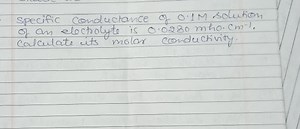 Specific conductance of 0.1M solution
of an eloctrolyte is 0.0280 mho.cm⁻¹.
Calculate its molar conductivity.